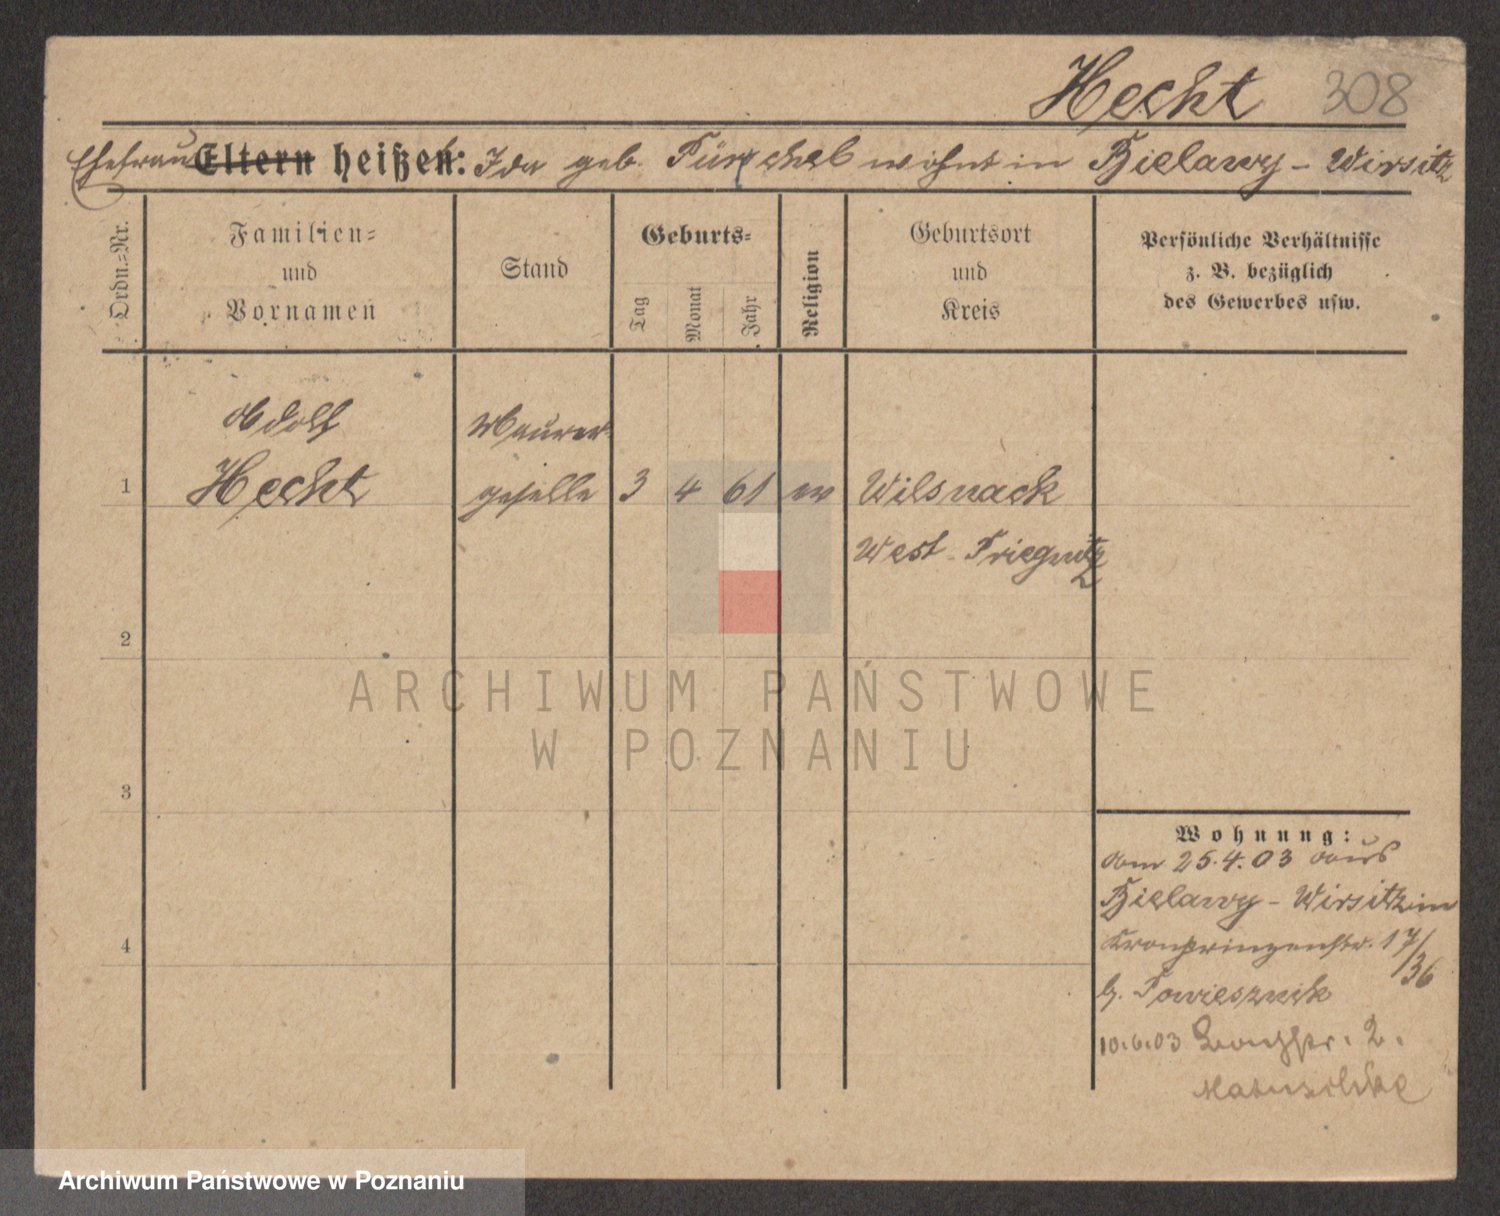 Hecht 308
Ehefrau Eltern heißen: Ida geb. wohnt in Bielawy - Wirsitz
Ordn.=Nr.
Familien=
und
Vornamen
Stand
Geburts=
Tag
Monat
Jahr
Religion
Geburtsort
und
Kreis
Persönliche Verhältnisse
z. B. bezüglich
des Gewerbes usw.
Adolf
Maurer
1 Hecht geselle 3 4 61 ev Wilsnack
West-Priegnitz
2
ARCHIWUM PAŃSTWOWE
W POZNANIU
3
Wohnung:
am 25.4.03 aus
Bielawy - Wirsitz in
4
Kronprinzenstr. 17/36
b.
10.6.03 2.
Archiwum Państwowe w Poznaniu